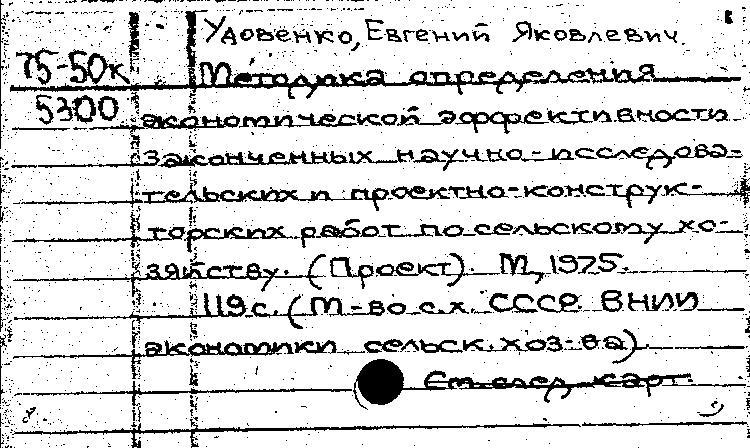 Удовенко, Евгений Яковлевич.
75-50к Методика определения
5300 экономической эффективности
законченных научно-исследова-
тельских и проектно-конструк-
торских работ по сельскому хо-
зяйству. (Проект). М, 1975.
119 с. (М-во с.х. СССР. ВНИИ
экономики сельск. хоз-ва).
См. след. карт.